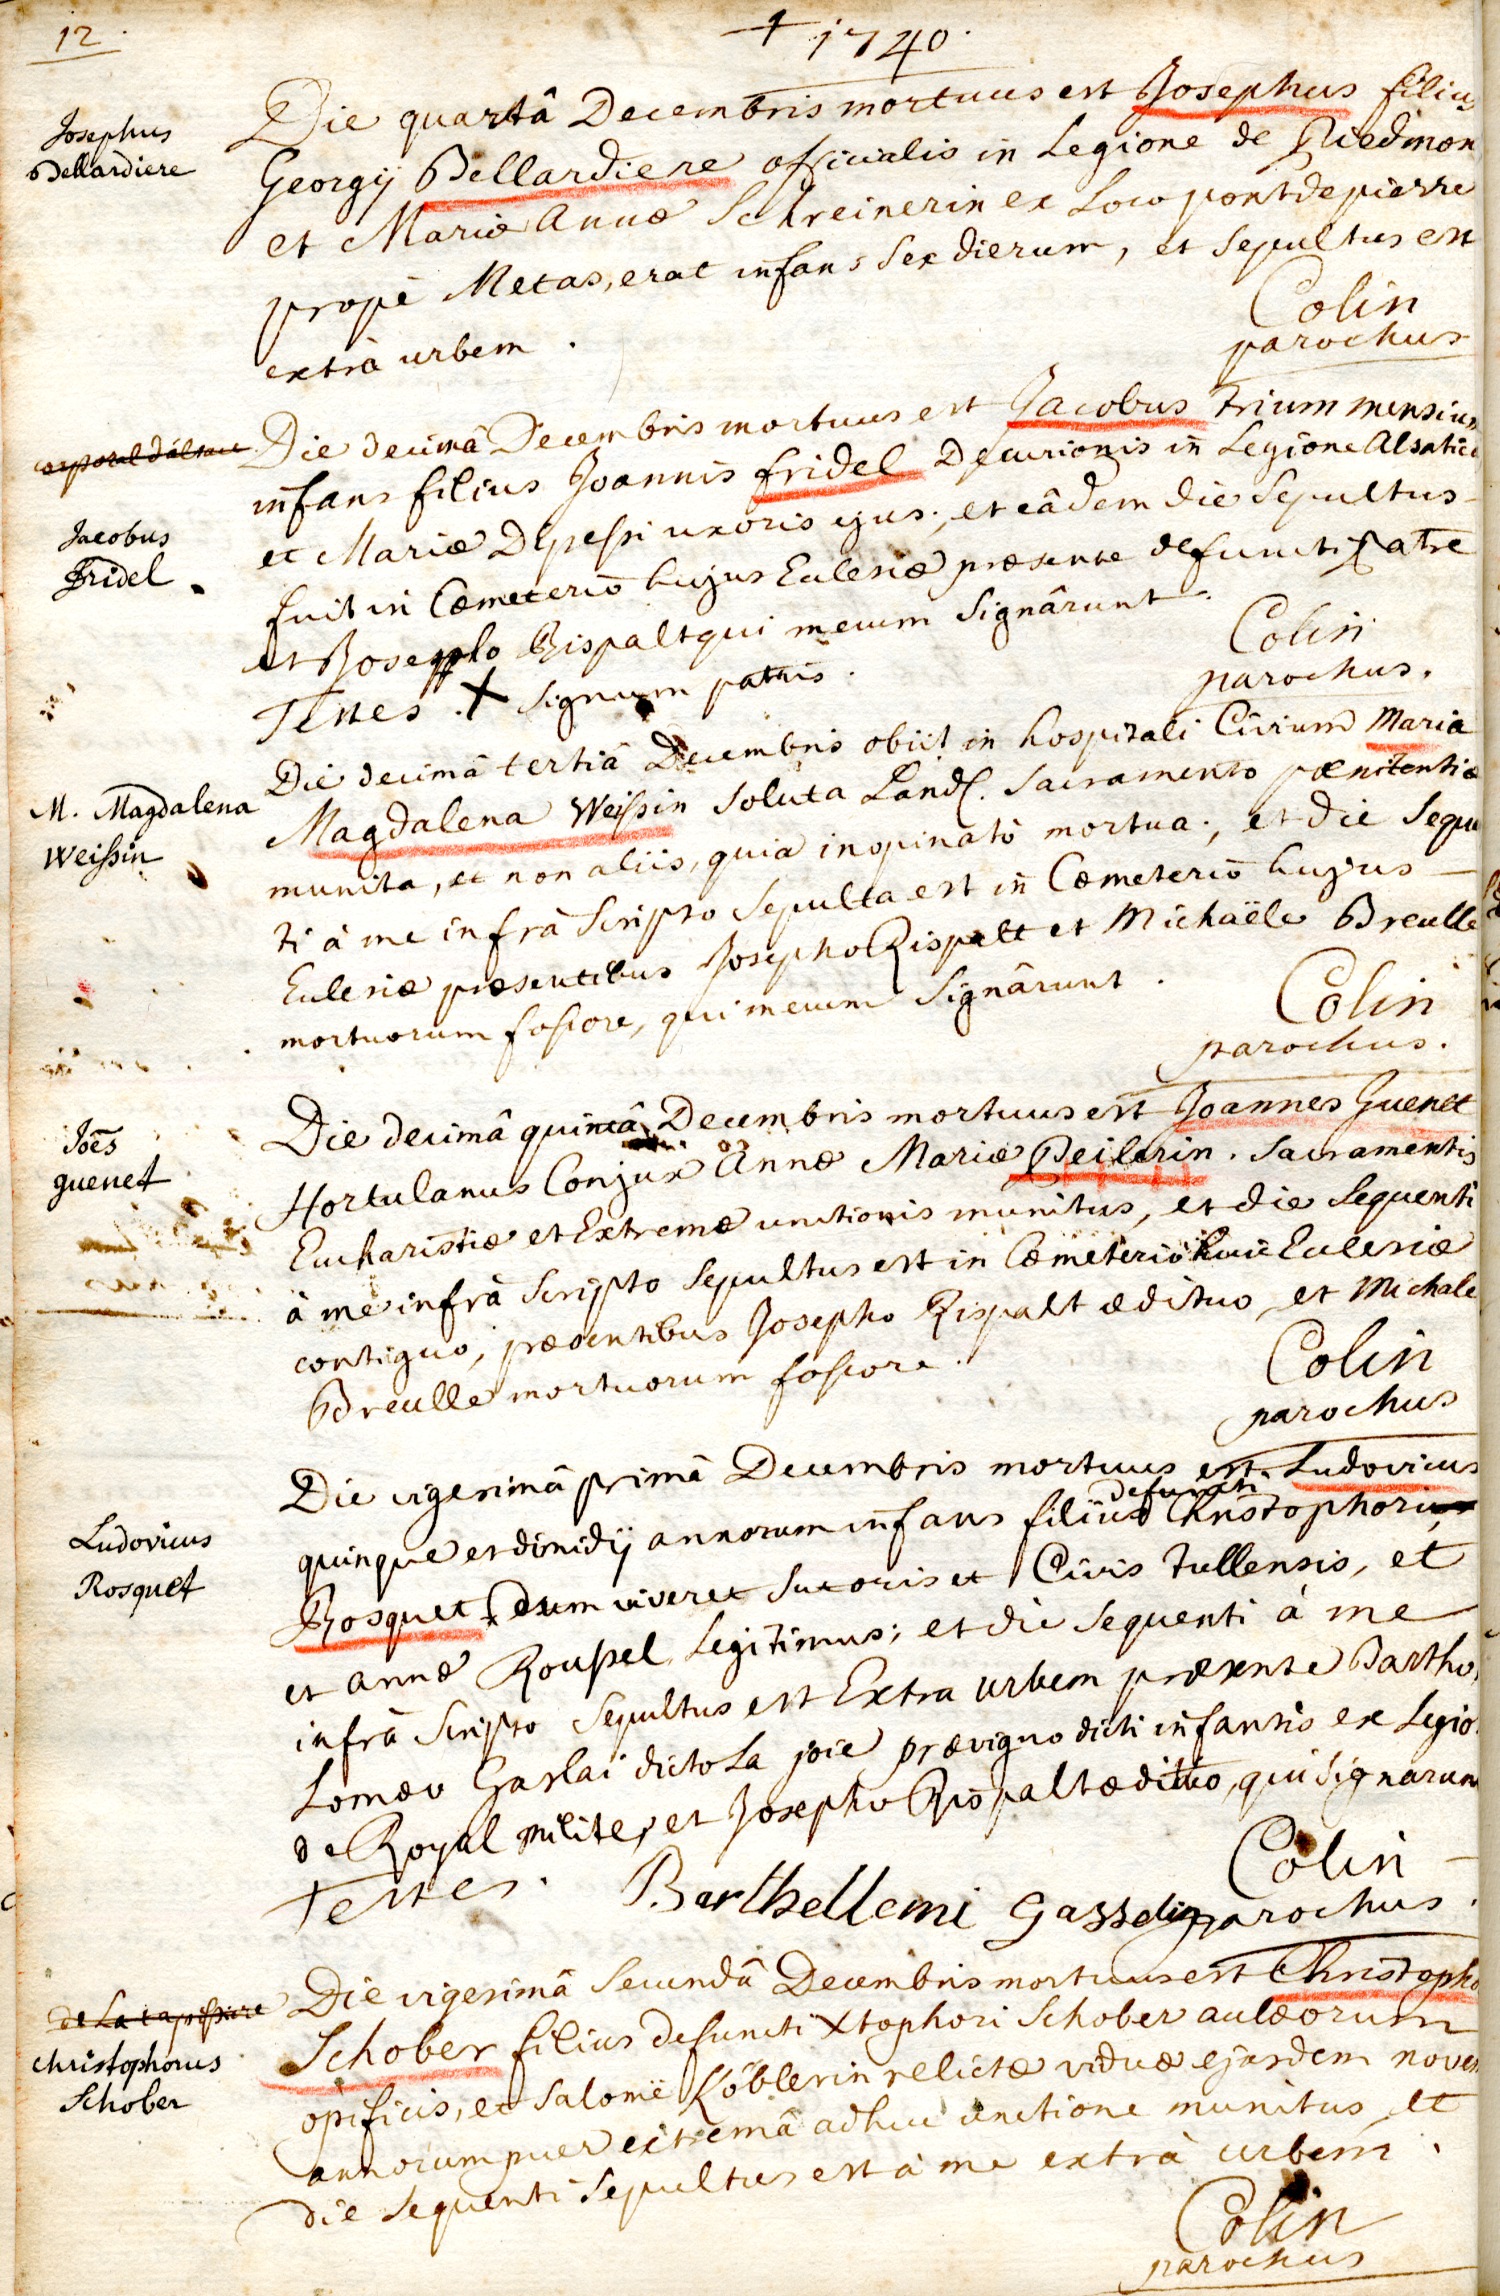 12.
+ 1740.
Josephus
Bellardiere
Die quartâ Decembris mortuus est Josephus filius
Georgij Bellardiere officialis in Legione de Piedmon
et Mariæ Annæ Schreinerin ex Loco pont de pierre
propè Metas, erat infans sex dierum, et sepultus est
extrà urbem.
Colin
parochus
corporal d'alsace
Jacobus
Fridel.
Die decimâ Decembris mortuus est Jacobus trium mensium
infans filius Joannis fridel Decurionis in Legione Alsatica
et Mariæ Depessi uxoris ejus; et eâdem die sepultus
fuit in Cœmeterio hujus Eclesiæ præsente defuncti patre
et Josepho Rispalt qui mecum signârunt.
Testes. X signum patris.
Colin
parochus.
M. Magdalena
Weissin
Die decimâ tertiâ Decembris obiit in hospitali Civium Maria
Magdalena Weissin soluta Land. sacramento pœnitentiæ
munita, et non aliis, quia inopinatò mortua; et die sequ
ti à me infrà scripto sepulta est in Cœmeterio hujus
Eclesiæ præsentibus Josepho Rispalt et Michaële Breulle
mortuorum fossore, qui mecum signârunt.
Colin
parochus.
Joēs
guenet
Die decimâ quintâ Decembris mortuus est Joannes Guenet
Hortulanus Conjux Annæ Mariæ Peilerin. Sacramentis
Eucharistiæ et Extremæ unctionis munitus, et die sequenti
à me infrà scripto sepultus est in Cœmeterio huic Eclesiæ
contiguo, præsentibus Josepho Rispalt ædituo, et Michale
Breulle mortuorum fossore.
Colin
parochus
Ludovicus
Rosquet
Die vigesimâ primâ Decembris mortuus est Ludovicus
quinque et dimidij annorum infans filius defuncti Christophori
Rosquet dum viveret sutoris et Civis Tullensis, et
et annæ Roussel Legitimus; et die sequenti à me
infrà scripto sepultus est Extra urbem præsente Bartho
Lomæo Gaslai dicto La joie prævigno dicti infantis ex Legio
de Royal milite, et Josepho Rispalt ædituo, qui signarun
Testes.
Barthellemi Gasselin
Colin
parochus.
de La tapissiere
christophorus
Schober
Die vigesimâ secundâ Decembris mortuus est Christopho
Schober filius defuncti Xtophori Schober aulæorum
opificis, et Salomë Köblerin relictæ viduæ ejusdem novem
annorum puer extremâ adhuc unctione munitus, et
die sequenti sepultus est à me extrà urbem.
Colin
parochus